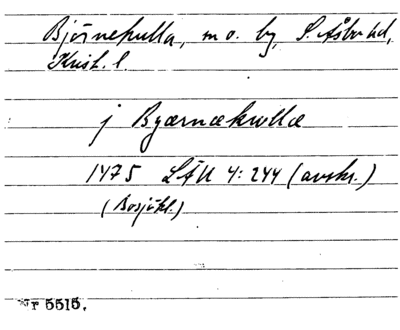 Björnekulla, m o. by, S. Åsbo hd,
Krist. l.
j Byærnækwllæ
1475 LÄU 4: 244 (avskr.)
(Bosjökl.)
Nr 5515.